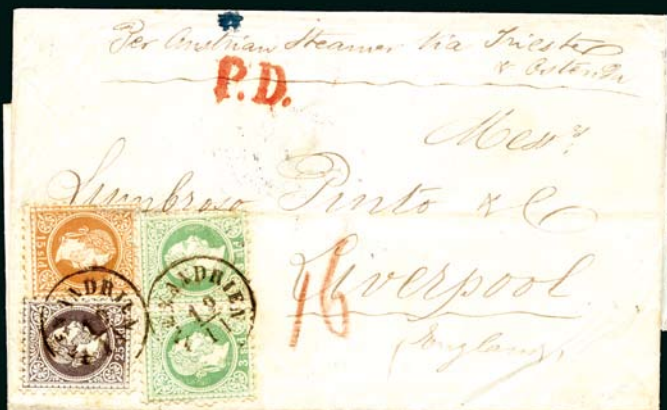 Per Austrian Steamer via Trieste
& Ostende
P.D.
Messrs
Lumbroso Pinto & C
Liverpool
(England)
16
15 SLD
25 SLD
3 SLD
ALEXANDRIEN
ALEXANDRIEN